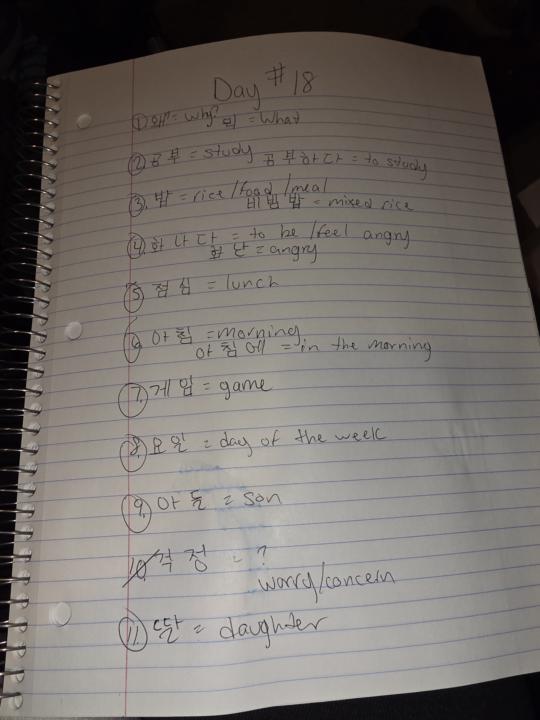 Day #18
① 왜? = Why? 뭐 = What
② 공부 = study 공부하다 = to study
③. 밥 = rice/food/meal
비빔밥 = mixed rice
④. 화나다 = to be/feel angry
화난 = angry
⑤. 점심 = lunch
⑥. 아침 = morning
아침에 = in the morning
⑦. 게임 = game
⑧. 요일 = day of the week
⑨. 아들 = son
10. 걱정 = ?
worry/concern
⑪. 딸 = daughter